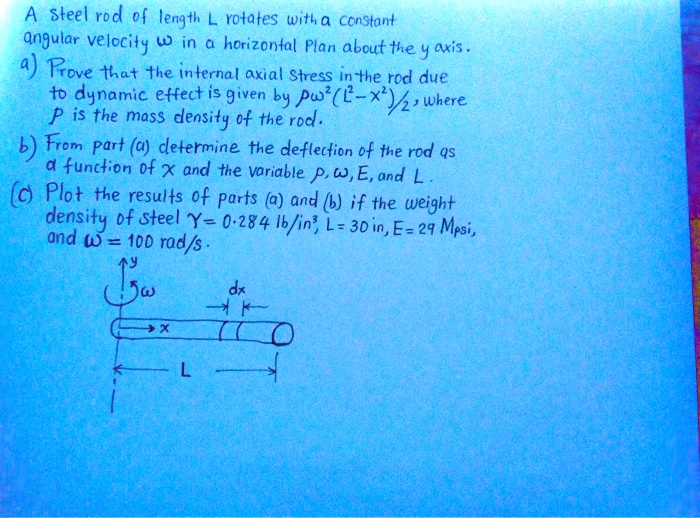 A steel rod of length L rotates with a constant
angular velocity ω in a horizontal Plan about the y axis.
a) Prove that the internal axial stress in the rod due
to dynamic effect is given by ρω²(L²-x²)/2, where
ρ is the mass density of the rod.
b) From part (a) determine the deflection of the rod as
a function of x and the variable ρ, ω, E, and L.
(c) Plot the results of parts (a) and (b) if the weight
density of steel γ= 0.284 lb/in³, L= 30 in, E= 29 Mpsi,
and ω = 100 rad/s.
y
ω
dx
x
L